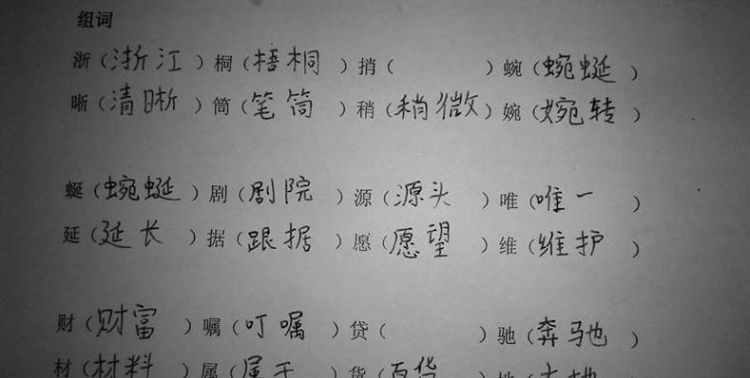 组词
浙（浙江）桐（梧桐）捎（ ）蜿（蜿蜒）
晰（清晰）筒（笔筒）稍（稍微）婉（婉转）
蜒（蜿蜒）剧（剧院）源（源头）唯（唯一）
延（延长）据（跟据）愿（愿望）维（维护）
财（财富）嘱（叮嘱）贷（ ）驰（奔驰）
材（材料）属（属于）货（百货